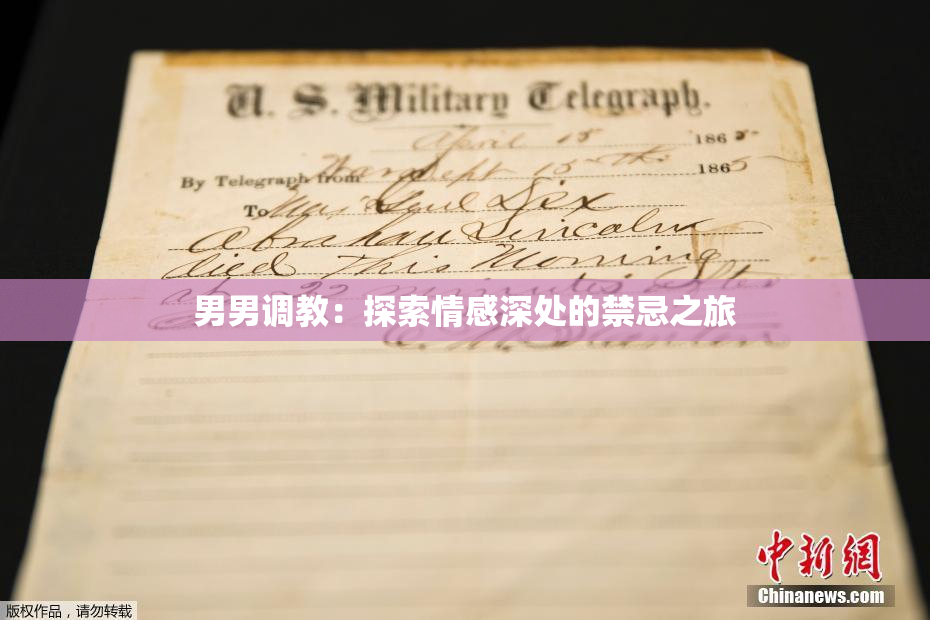 U. S. Military Telegraph.
April 15 1865
By Telegraph from War Dept 15th 1865
To Maj Genl Dix
Abraham Lincoln
died This Morning
at 22 minutes after
男男调教：探索情感深处的禁忌之旅
E. M. Stanton
中新网
Chinanews.com
版权作品，请勿转载